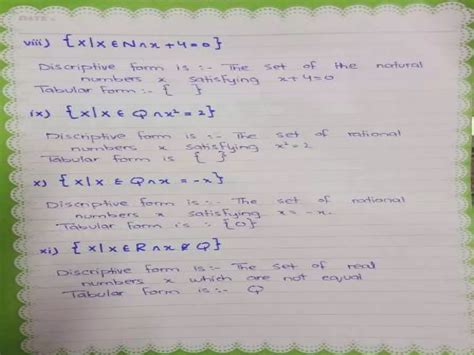 DATE:
viii) {x|x ∈ N ∧ x + 4 = 0}
Discriptive form is :- The set of the natural
numbers x satisfying x+4=0
Tabular Form :- { }
ix) {x|x ∈ Q ∧ x² = 2}
Discriptive form is :- The set of rational
numbers x satisfying x² = 2
Tabular form is { }
x) {x|x ∈ Q ∧ x = -x}
Discriptive form is :- The set of rational
numbers x satisfying x = -x.
Tabular form is :- {0}
xi) {x|x ∈ R ∧ x ∉ Q}
Discriptive form is :- The set of real
numbers x which are not equal
Tabular Form is :- Q